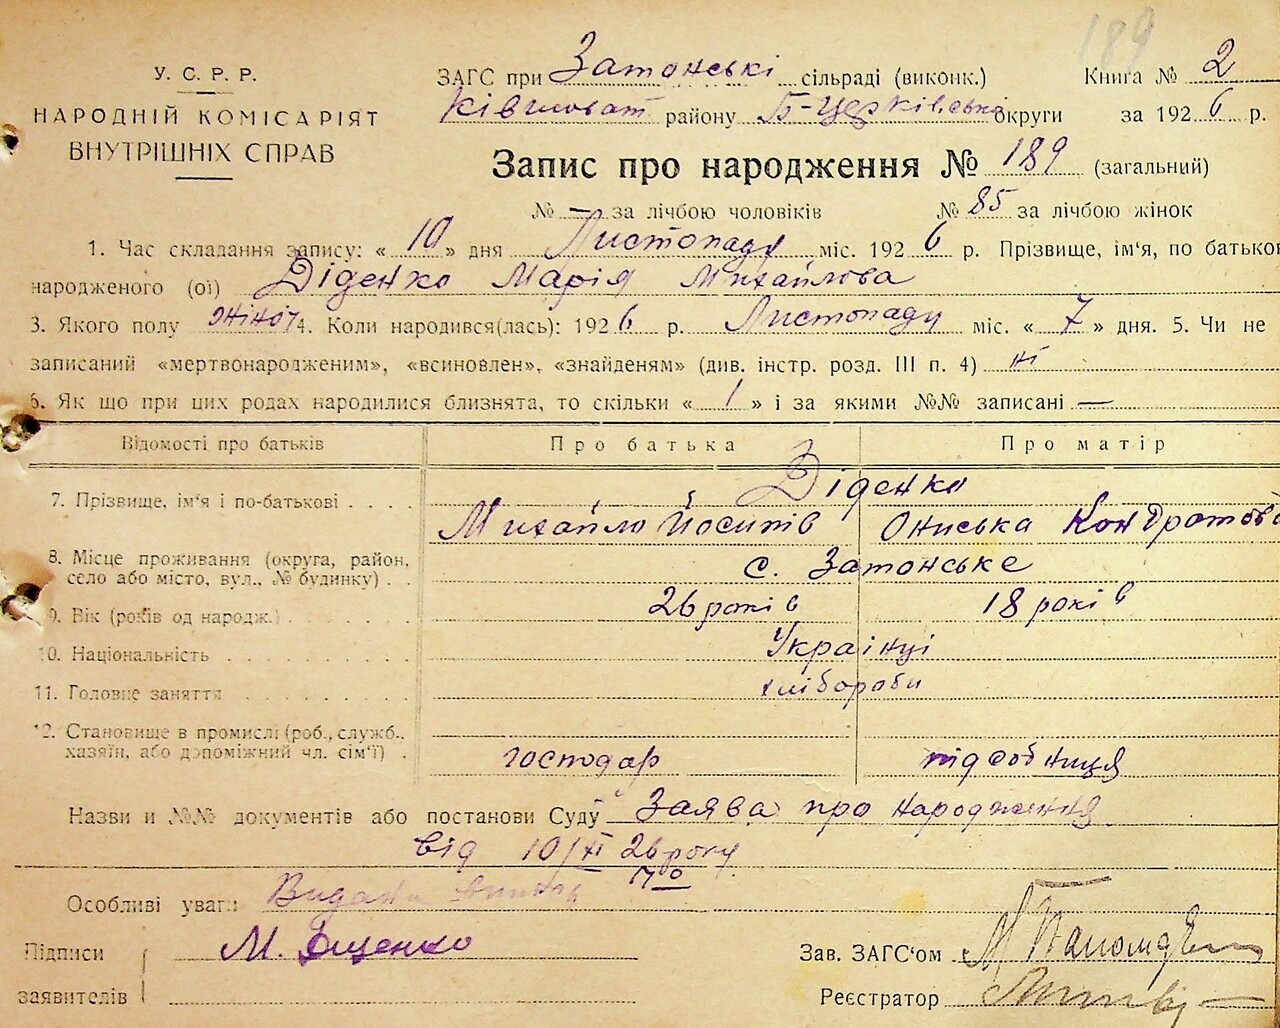 189
У. С. Р. Р.
НАРОДНІЙ КОМІСАРІЯТ
ВНУТРІШНІХ СПРАВ
ЗАГС при Затонські сільраді (виконк.) Книга № 2
району Б-Церківська округи за 1926 р.
Запис про народження № 189 (загальний)
№ — за лічбою чоловіків № 85 за лічбою жінок
1. Час складання запису: « 10 » дня Листопаду міс. 1926 р. Прізвище, ім'я, по батькові
народженого (ої) Діденко Марія Михайлова
3. Якого полу жіноч 4. Коли народився(лась): 1926 р. Листопаду міс. « 7 » дня. 5. Чи не
записаний «мертвонародженим», «всиновлен», «знайденям» (див. інстр. розд. III п. 4) ні
6. Як що при цих родах народилися близнята, то скільки « 1 » і за якими №№ записані —
Відомості про батьків Про батька Про матір
7. Прізвище, ім'я і по-батькові . . . . Діденко
Михайло Йосипів Ониська Кондратова
8. Місце проживання (округа, район,
село або місто, вул., № будинку) . . с. Затонське
9. Вік (років од народж.) 26 років 18 років
10. Національність Українці
11. Головне заняття хлібороби
12. Становище в промислі (роб., служб.,
хазяїн, або допоміжний чл. сім'ї) . господар підсобниця
Назви и №№ документів або постанови Суду Заява про народження
від 10/XI 26 року
Особливі уваги: Видана
Підписи М. Діденко Зав. ЗАГС'ом
заявителів Реєстратор